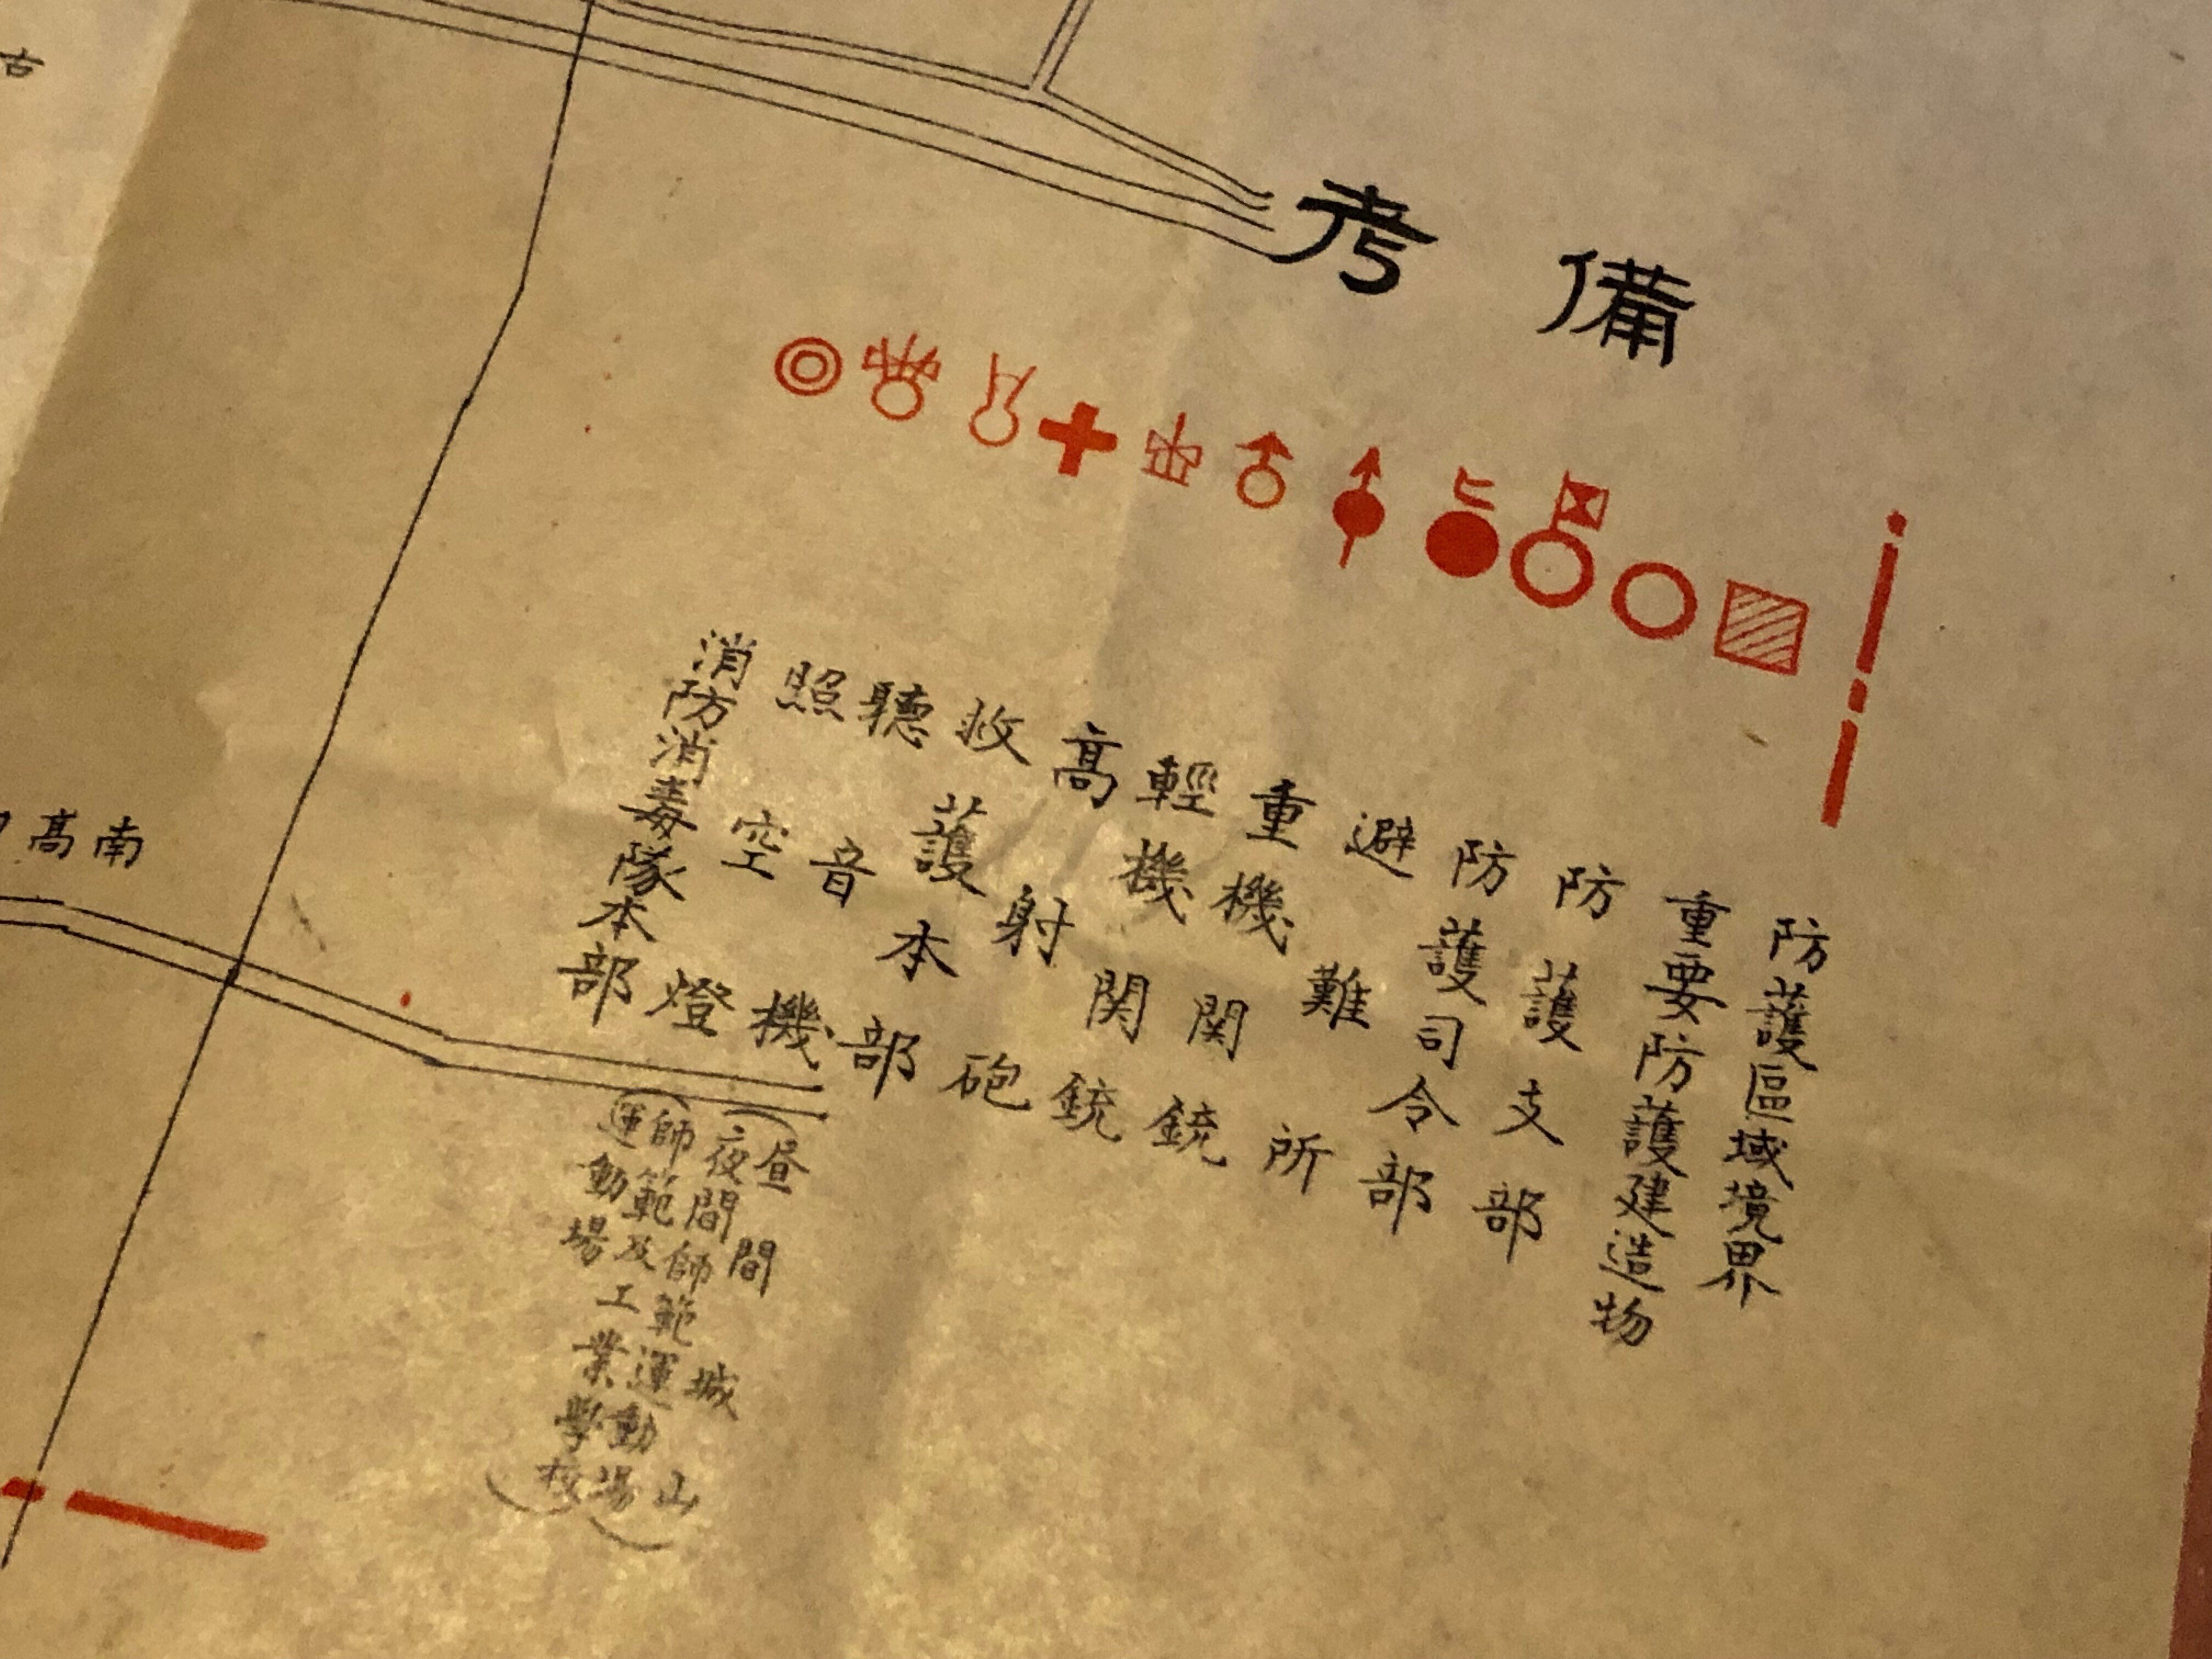 備考
防護區域境界
重要防護建造物
防護支部
防護司令部
避難所
重機関銃
輕機関銃
高射砲
救護本部
聽音機
照空燈
消防消毒隊本部
(昼間城山
夜間師範運動場)
(師範及工業學校
運動場)
南高
古